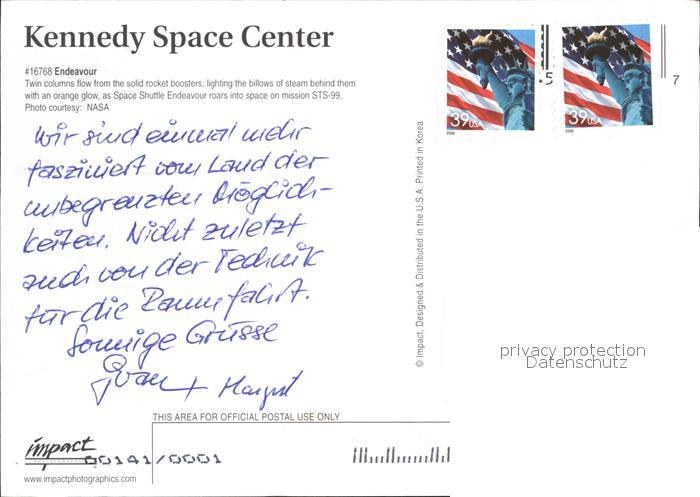 Kennedy Space Center
#16768 Endeavour
Twin columns flow from the solid rocket boosters, lighting the billows of steam behind them
with an orange glow, as Space Shuttle Endeavour roars into space on mission STS-99.
Photo courtesy: NASA
Wir sind einmal mehr
fasziniert vom Land der
unbegrenzten Möglich-
keiten. Nicht zuletzt
auch von der Technik
für die Raumfahrt.
Sonnige Grüsse
+ Margrit
39 USA
2006
5
39 USA
2006
7
© Impact. Designed & Distributed in the U.S.A. Printed in Korea
privacy protection
Datenschutz
THIS AREA FOR OFFICIAL POSTAL USE ONLY
impact
00141/0001
www.impactphotographics.com